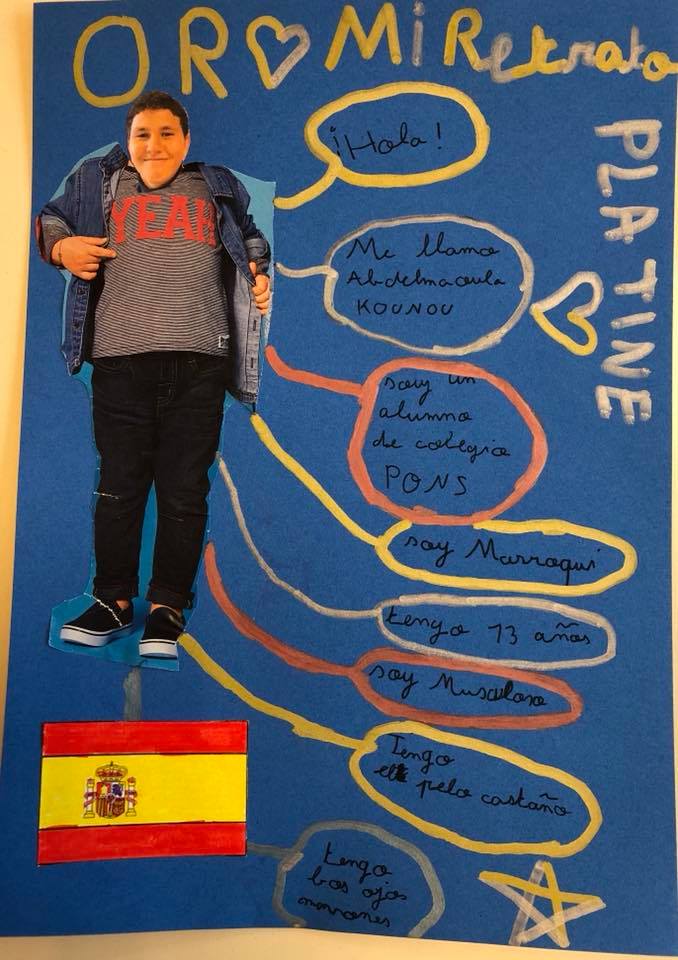 OR Mi Retrato
PLATINE
¡Hola!
YEAH
Me llamo
Abdelmaoula
KOUNOU
soy un
alumno
de colegio
PONS
soy Marroqui
tengo 13 años
soy Musculoso
Tengo
el pelo castaño
tengo
los ojos
marrones